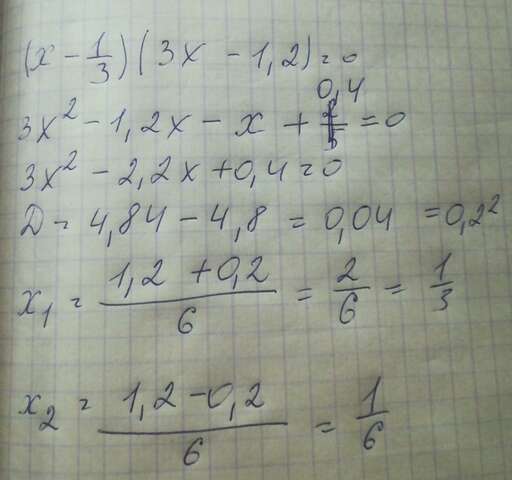 (x - 1/3)(3x - 1,2) = 0
3x² - 1,2x - x + 0,4 = 0
3x² - 2,2x + 0,4 = 0
D = 4,84 - 4,8 = 0,04 = 0,2²
x₁ = (1,2 + 0,2)/6 = 2/6 = 1/3
x₂ = (1,2 - 0,2)/6 = 1/6